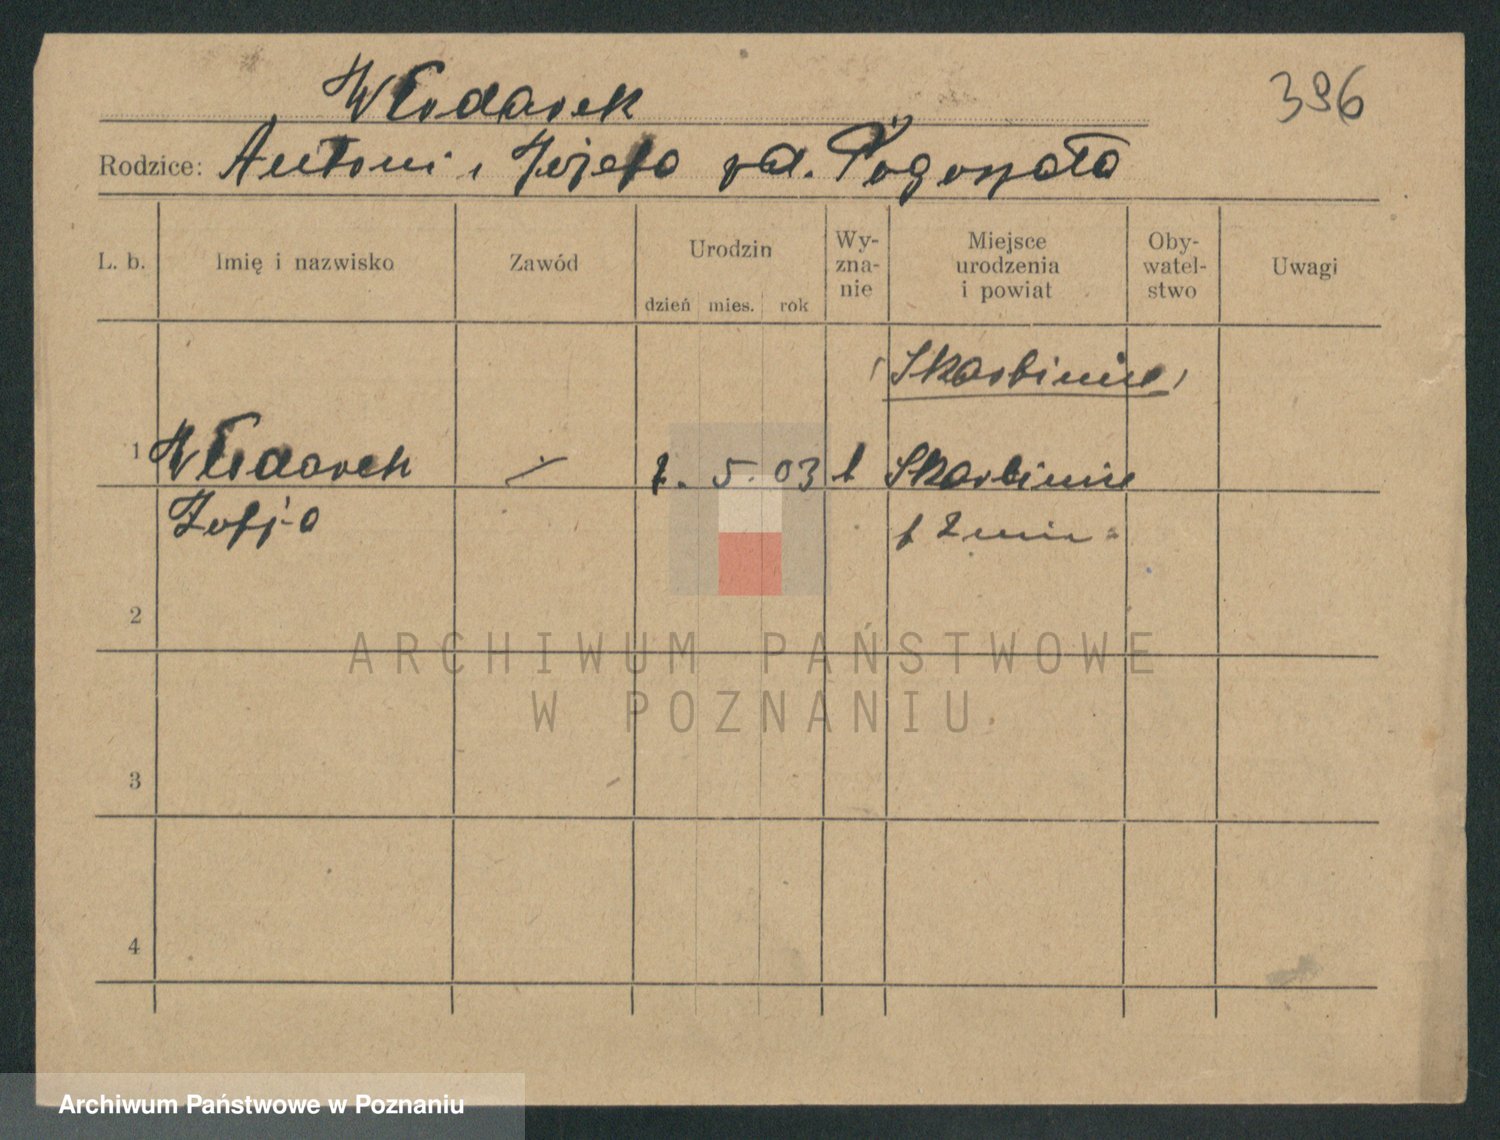 Włodarek
396
Rodzice: Antoni i Józefa zd. Pogorzała
L. b. Imię i nazwisko Zawód Urodzin dzień mies. rok Wy-
zna-
nie Miejsce
urodzenia
i powiat Oby-
watel-
stwo Uwagi
Skarbinice
1 Włodarek 5. 03 Skarbinice
Zofja
2
3
4
ARCHIWUM PAŃSTWOWE
W POZNANIU
Archiwum Państwowe w Poznaniu